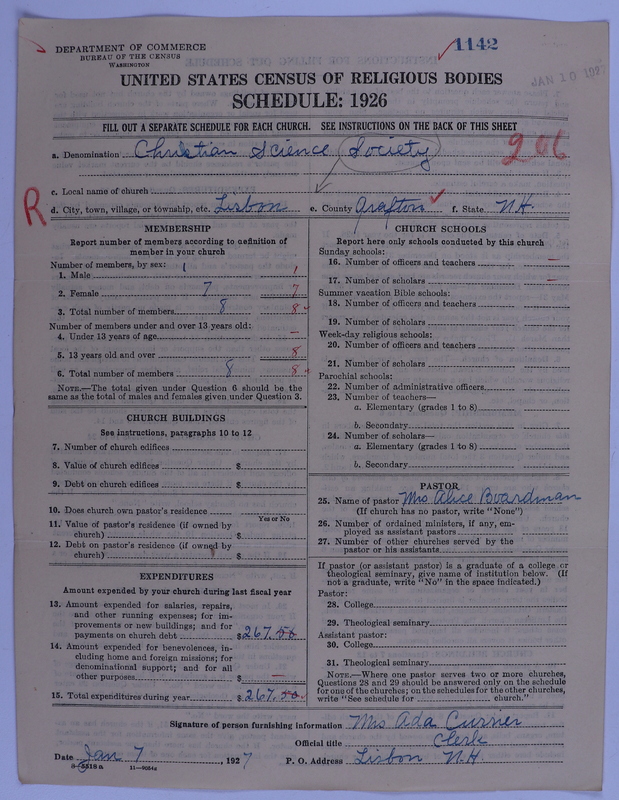 1142
DEPARTMENT OF COMMERCE
BUREAU OF THE CENSUS
WASHINGTON
JAN 10 192
UNITED STATES CENSUS OF RELIGIOUS BODIES
SCHEDULE: 1926
FILL OUT A SEPARATE SCHEDULE FOR EACH CHURCH. SEE INSTRUCTIONS ON THE BACK OF THIS SHEET
a. Denomination Christian Science Society
206
c. Local name of church
R
d. City, town, village, or township, etc. Lisbon e. County Grafton f. State N.H.
MEMBERSHIP
Report number of members according to definition of
member in your church
Number of members, by sex:
1. Male 1 1
2. Female 7 7
3. Total number of members 8 8
Number of members under and over 13 years old:
4. Under 13 years of age —
5. 13 years old and over 8
6. Total number of members 8 8
NOTE.—The total given under Question 6 should be the
same as the total of males and females given under Question 3.
CHURCH BUILDINGS
See instructions, paragraphs 10 to 12
7. Number of church edifices
8. Value of church edifices $
9. Debt on church edifices $
10. Does church own pastor's residence
Yes or No
11. Value of pastor's residence (if owned by
church) $
12. Debt on pastor's residence (if owned by
church) $
EXPENDITURES
Amount expended by your church during last fiscal year
13. Amount expended for salaries, repairs,
and other running expenses; for im-
provements or new buildings; and for
payments on church debt $267.50
14. Amount expended for benevolences, in-
cluding home and foreign missions; for
denominational support; and for all
other purposes $ —
15. Total expenditures during year $267.50
CHURCH SCHOOLS
Report here only schools conducted by this church
Sunday schools:
16. Number of officers and teachers —
17. Number of scholars —
Summer vacation Bible schools:
18. Number of officers and teachers
19. Number of scholars
Week-day religious schools:
20. Number of officers and teachers
21. Number of scholars
Parochial schools:
22. Number of administrative officers
23. Number of teachers—
a. Elementary (grades 1 to 8)
b. Secondary
24. Number of scholars—
a. Elementary (grades 1 to 8)
b. Secondary
PASTOR
25. Name of pastor Mrs. Alice Boardman
(If church has no pastor, write "None")
26. Number of ordained ministers, if any, em-
ployed as assistant pastors
27. Number of other churches served by the
pastor or his assistants
If pastor (or assistant pastor) is a graduate of a college or
theological seminary, give name of institution below. (If
not a graduate, write "No" in the space indicated.)
Pastor:
28. College
29. Theological seminary
Assistant pastor:
30. College
31. Theological seminary
NOTE.—Where one pastor serves two or more churches,
Questions 28 and 29 should be answered only on the schedule
for one of the churches; on the schedules for the other churches,
write "See schedule for church."
Signature of person furnishing information Mrs Ada
Official title Clerk
Date Jan 7, 1927 P. O. Address Lisbon N.H.
8—5518 a 11—9054a